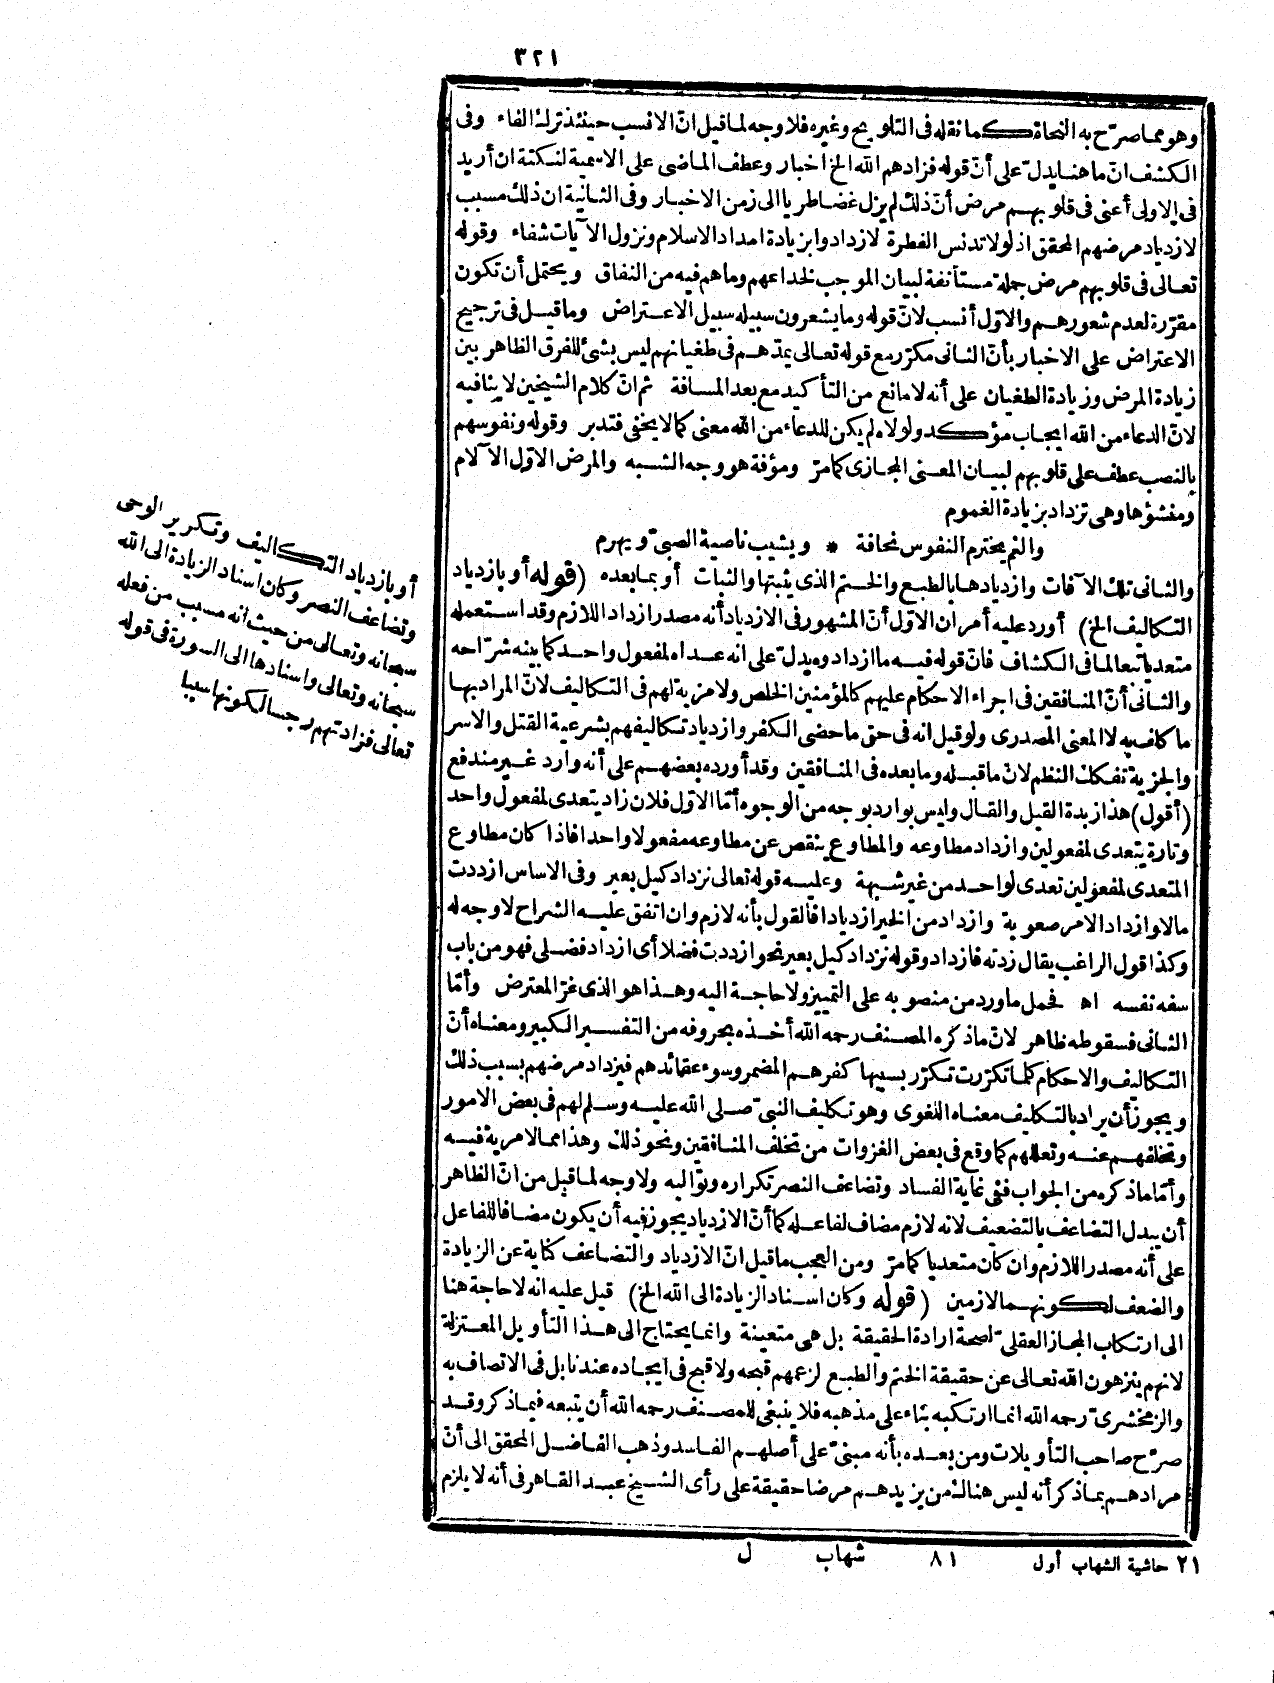 ٣٢١
وهو مما صرّح به النحاة كما نقله فى التلويح وغيره فلا وجه لما قيل انّ الانسب حينئذ ترك الفاء وفى
الكشف انّ ما هنا يدلّ على أنّ قوله فزادهم الله الخ اخبار وعطف الماضى على الاسمية لنكتة ان أريد
فى الاولى أعنى فى قلوبهم مرض أنّ ذلك لم يزل غضا طريا الى زمن الاخبار وفى الثانية ان ذلك مسبب
لازدياد مرضهم المحقق اذ لولا تدنس الفطرة لازدادوا بزيادة امداد الاسلام ونزول الآيات شفاء وقوله
تعالى فى قلوبهم مرض جملة مستأنفة لبيان الموجب لخداعهم وما هم فيه من النفاق ويحتمل أن تكون
مقرّرة لعدم شعورهم والاوّل أنسب لانّ قوله وما يشعرون سبيله سبيل الاعتراض وما قيل فى ترجيح
الاعتراض على الاخبار بأنّ الثانى مكرّر مع قوله تعالى يمدّهم فى طغيانهم ليس بشئ للفرق الظاهر بين
زيادة المرض وزيادة الطغيان على أنه لا مانع من التأكيد مع بعد المسافة ثم انّ كلام الشيخين لا ينافيه
لانّ الدعاء من الله ايجاب مؤكد ولولاه لم يكن للدعاء من الله معنى كما لا يخفى فتدبر وقوله ونفوسهم
بالنصب عطف على قلوبهم لبيان المعنى المجازى كما مرّ ومؤفة هو وجه الشبه والمرض الاوّل الآلام
ومنشؤها وهى تزداد بزيادة الغموم
والغم يخترم النفوس نحافة * ويشيب ناصية الصبىّ ويهرم
والثانى تلك الآفات وازديادها بالطبع والختم الذى يثبتها والثبات أو بما بعده (قوله أو بازدياد
التكاليف الخ) أورد عليه أمران الاوّل أنّ المشهور فى الازدياد أنه مصدر ازداد اللازم وقد استعمله
متعديا تبعا لما فى الكشاف فانّ قوله فيه ما ازدادوه يدلّ على انه عداه لمفعول واحد كما بينه شرّاحه
والثانى أنّ المنافقين فى اجراء الاحكام عليهم كالمؤمنين الخلص ولا مزية لهم فى التكاليف لانّ المراد بها
ما كاف به لا المعنى المصدرى ولو قيل انه فى حق ما حضى الكفر وازدياد تكاليفهم بشرعية القتل والاسر
والجزية تفكك النظم لانّ ما قبله وما بعده فى المنافقين وقد أورده بعضهم على أنه وارد غير مندفع
(أقول) هذا زبدة القيل والقال وليس بوارد بوجه من الوجوه أمّا الاوّل فلان زاد يتعدى لمفعول واحد
وتارة يتعدى لمفعولين وازداد مطاوعه والمطاوع ينقص عن مطاوعه مفعولا واحدا فاذا كان مطاوع
المتعدى لمفعولين تعدى لواحد من غير شبهة وعليه قوله تعالى نزداد كيل بعير وفى الاساس ازددت
مالا وازداد الامر صعوبة وازداد من الخير ازديادا فالقول بأنه لازم وان اتفق عليه الشراح لا وجه له
وكذا قول الراغب يقال زدته فازداد وقوله نزداد كيل بعير نحو ازددت فضلا أى ازداد فضلى فهو من باب
سفه نفسه اه فحمل ما ورد من منصوبه على التمييز ولا حاجة اليه وهذا هو الذى غرّ المعترض وأمّا
الثانى فسقوطه ظاهر لانّ ما ذكره المصنف رحمه الله أخذه بحروفه من التفسير الكبير ومعناه أنّ
التكاليف والاحكام كلما تكرّرت تكرّر بسببها كفرهم المضمر وسوء عقائدهم فيزداد مرضهم بسبب ذلك
ويجوز أن يراد بالتكليف معناه اللغوى وهو تكليف النبىّ صلى الله عليه وسلم لهم فى بعض الامور
وتخلفهم عنه وتعللهم كما وقع فى بعض الغزوات من تخلف المنافقين ونحو ذلك وهذا مما لا مرية فيه
وأمّا ما ذكره من الجواب ففى غاية الفساد وتضاعف النصر تكراره وتواليه ولا وجه لما قيل من انّ الظاهر
أن يبدل التضاعف بالتضعيف لانه لازم مضاف لفاعله كما أنّ الازدياد يجوز فيه أن يكون مضافا للفاعل
على أنه مصدر اللازم وان كان متعديا كما مرّ ومن العجب ما قيل انّ الازدياد والتضاعف كناية عن الزيادة
والضعف لكونهما لازمين (قوله وكان اسناد الزيادة الى الله الخ) قيل عليه انه لا حاجة هنا
الى ارتكاب المجاز العقلىّ لصحة ارادة الحقيقة بل هى متعينة وانما يحتاج الى هذا التأويل المعتزلة
لانهم ينزهون الله تعالى عن حقيقة الختم والطبع لزعمهم قبحه ولا قبح فى ايجاده عندنا بل فى الاتصاف به
والزمخشرىّ رحمه الله انما ارتكبه بناء على مذهبه فلا ينبغى للمصنف رحمه الله أن يتبعه فيما ذكر وقد
صرّح صاحب التأويلات ومن بعده بأنه مبنىّ على أصلهم الفاسد وذهب الفاضل المحقق الى أنّ
مرادهم بما ذكر أنه ليس هنالك من يزيدهم مرضا حقيقة على رأى الشيخ عبد القاهر فى أنه لا يلزم
أو بازدياد التكاليف وتكرير الوحى
وتضاعف النصر وكان اسناد الزيادة الى الله
سبحانه وتعالى من حيث انه مسبب من فعله
سبحانه وتعالى واسنادها الى السورة فى قوله
تعالى فزادتهم رجسا لكونها سببا
٢١ حاشية الشهاب أول ٨١ شهاب ل